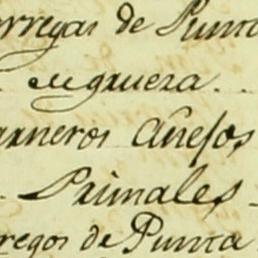 orregas de Punta
negruera
arneros Añejos
Primales
regos de Punta